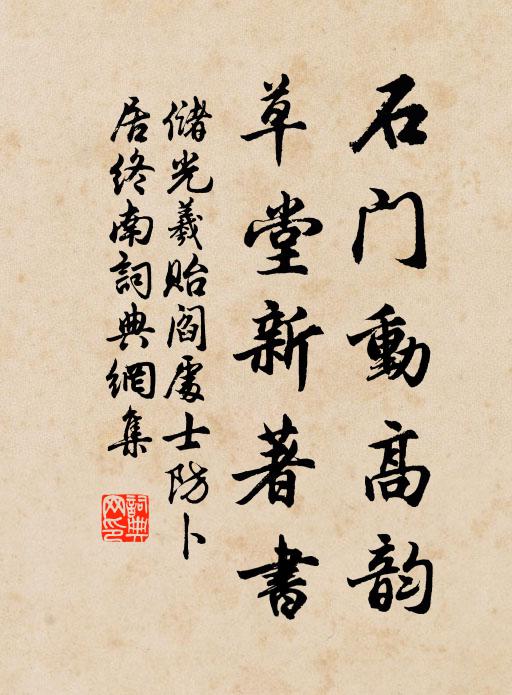 石门動高韵
草堂新著書
儲光羲貽閻處士防卜
居终南詞典網集
詞典网印